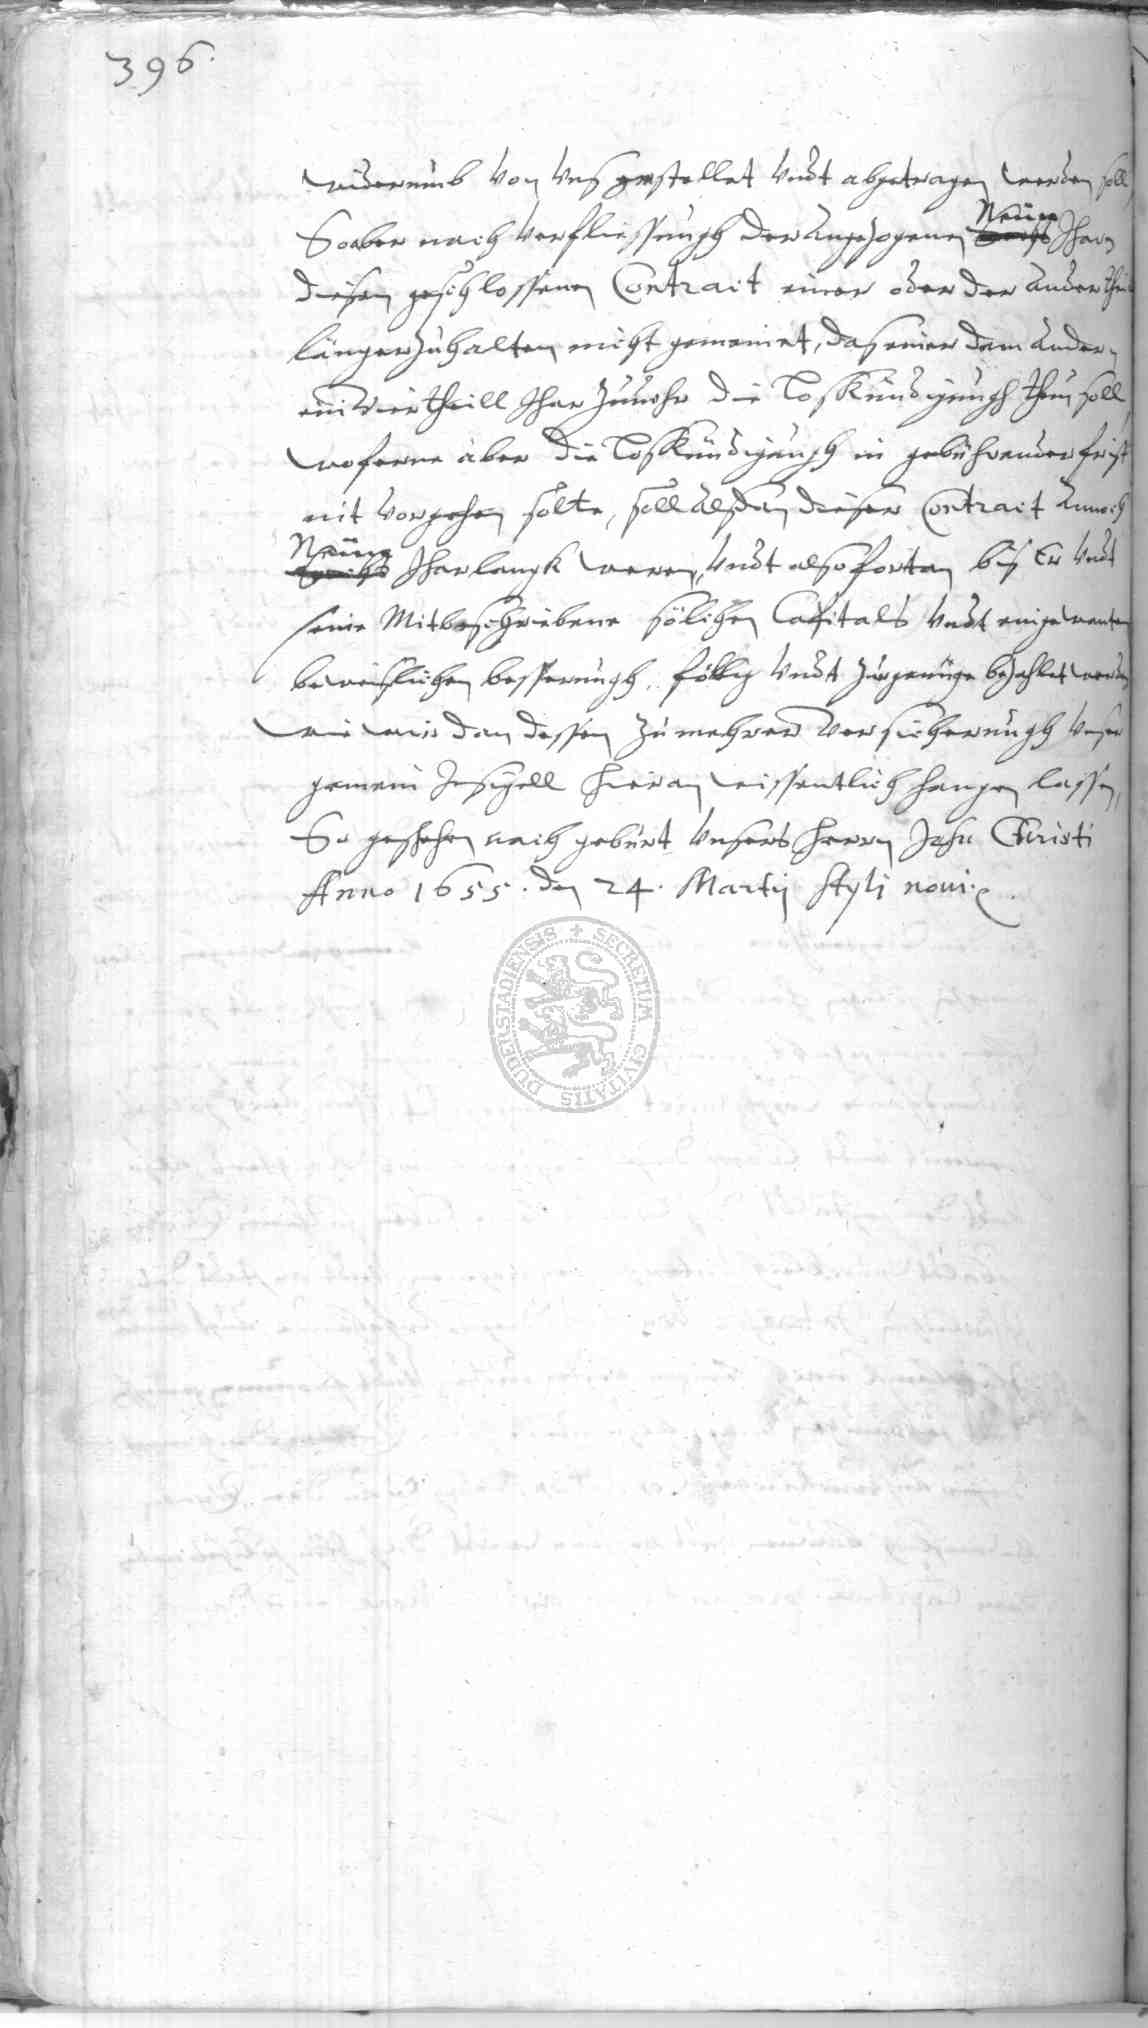 396.
widerumb von uns gestellet undt abgetragen werden soll
So aber nach verfliessungh der angezogenen Neün Jhar
diesen geschlossenen Contract einer oder der ander theil
länger zu halten nicht gemeinet, das einer dem andern
ein viertheill Jhar zuvohr die Loßkündigungh thun soll,
woferne aber die Loßkündigungh in gebührender frist
nit vorgehen solte, soll alsdan dieser Contract annoch
Neün Jharlangk weren, undt also fortan biß Er undt
seine Mitbeschriebene sölichen Capitals undt eingewanten
beweißlichen besserungh föllig undt zur genüge bezahlet werden
wie wir dan dessen zu mehrer versicherungh unser
gemein Insigell hieran wissentlich hangen lassen,
So geschehen nach gebürt unsers herrn Jesu Christi
Anno 1655. den 24. Martij styli novi.
SECRETUM CIVITATIS DUDERSTADIENSIS